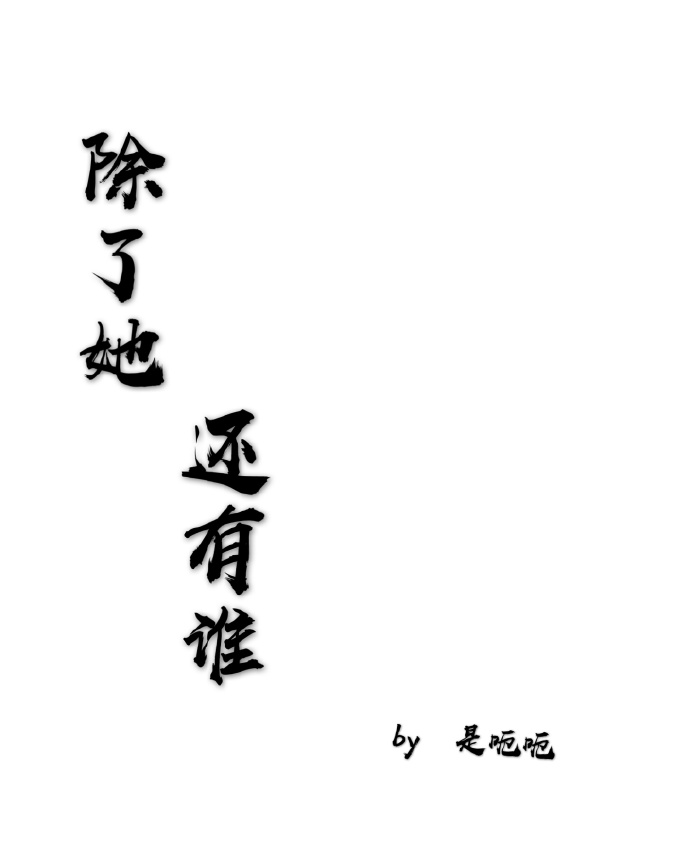 除了她
还有谁
by 是呃呃